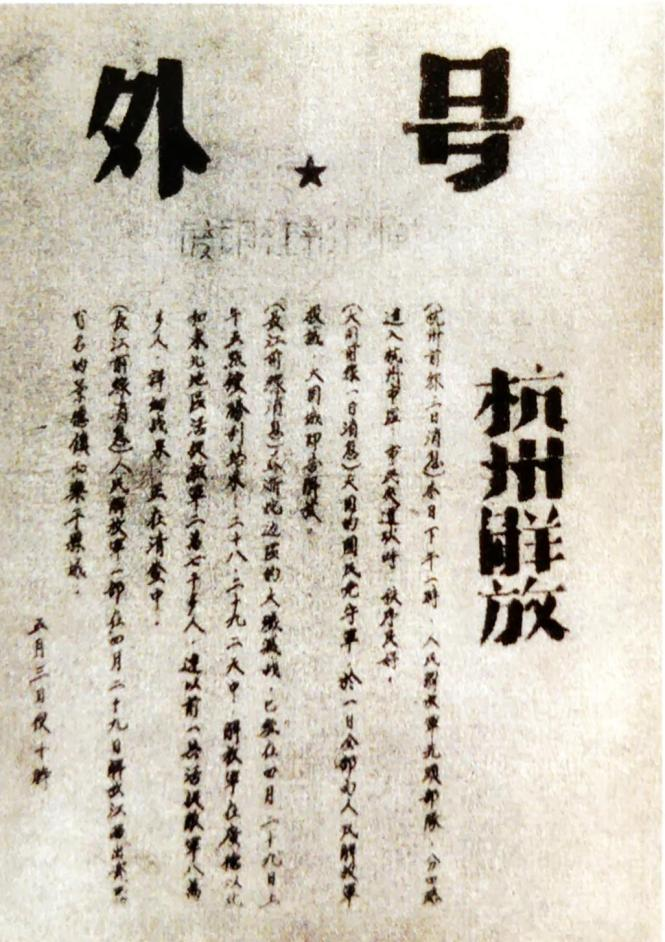 号★外
杭州解放
(杭州前線三日消息)今日下午二時，人民解放軍先頭部隊，分四路
進入杭州市區，市民夾道欢呼，秩序良好。
(大同前線一日消息)大同的國民党守軍，於一日全部向人民解放軍
投誠，大同城即告解放。
(長江前線消息)蘇浙皖边區的大殲滅战，已在四月二十九日上
午五點鐘勝利結束，二十八、二十九二天中，解放軍在廣德以北
和東北地區活捉敵軍二萬七千多人，連以前一共活捉敵軍八萬
多人，詳細战果，正在清查中。
(長江前線消息)人民解放軍一部在四月二十九日解放江西出瓷器
有名的景德鎮 樂平縣城。
五月三日夜十時